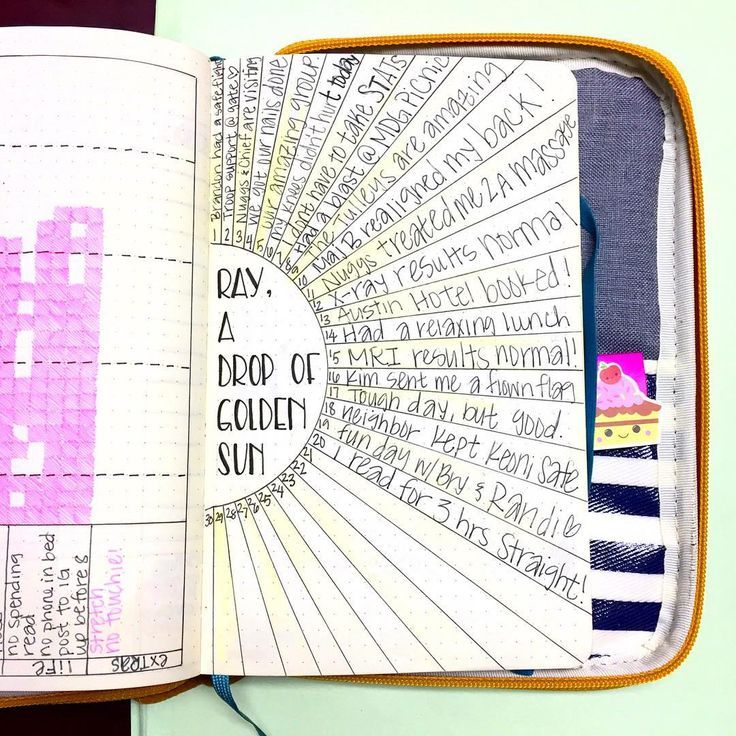 no spending
read
no phone in bed
post to IG
up before 8
stretch
no touchie!
life
extras
RAY,
A
DROP OF
GOLDEN
SUN
1 Brandon had a safe flight
2 Troop support @ gate ♡
3 Nuggs & Chief are visiting
4 we got our nails done
5 our amazing group
6 my knees didn't hurt today
7 I dont have to take STATS
8 Had a blast @ MDG PiCnic
9 the Tulleys are amazing
10 Maj B realigned my back!
11 Nuggs treated me 2 A massage
12 X-ray results normal
13 Austin Hotel booked!
14 Had a relaxing lunch
15 MRI results normal!
16 Kim sent me a flown flag
17 Tough day, but good.
18 neighbor kept Keoni safe
19 fun day w/ Bry & Randi ♡
20 I read for 3 hrs straight!
21
22
23
24
25
26
27
28
29
30